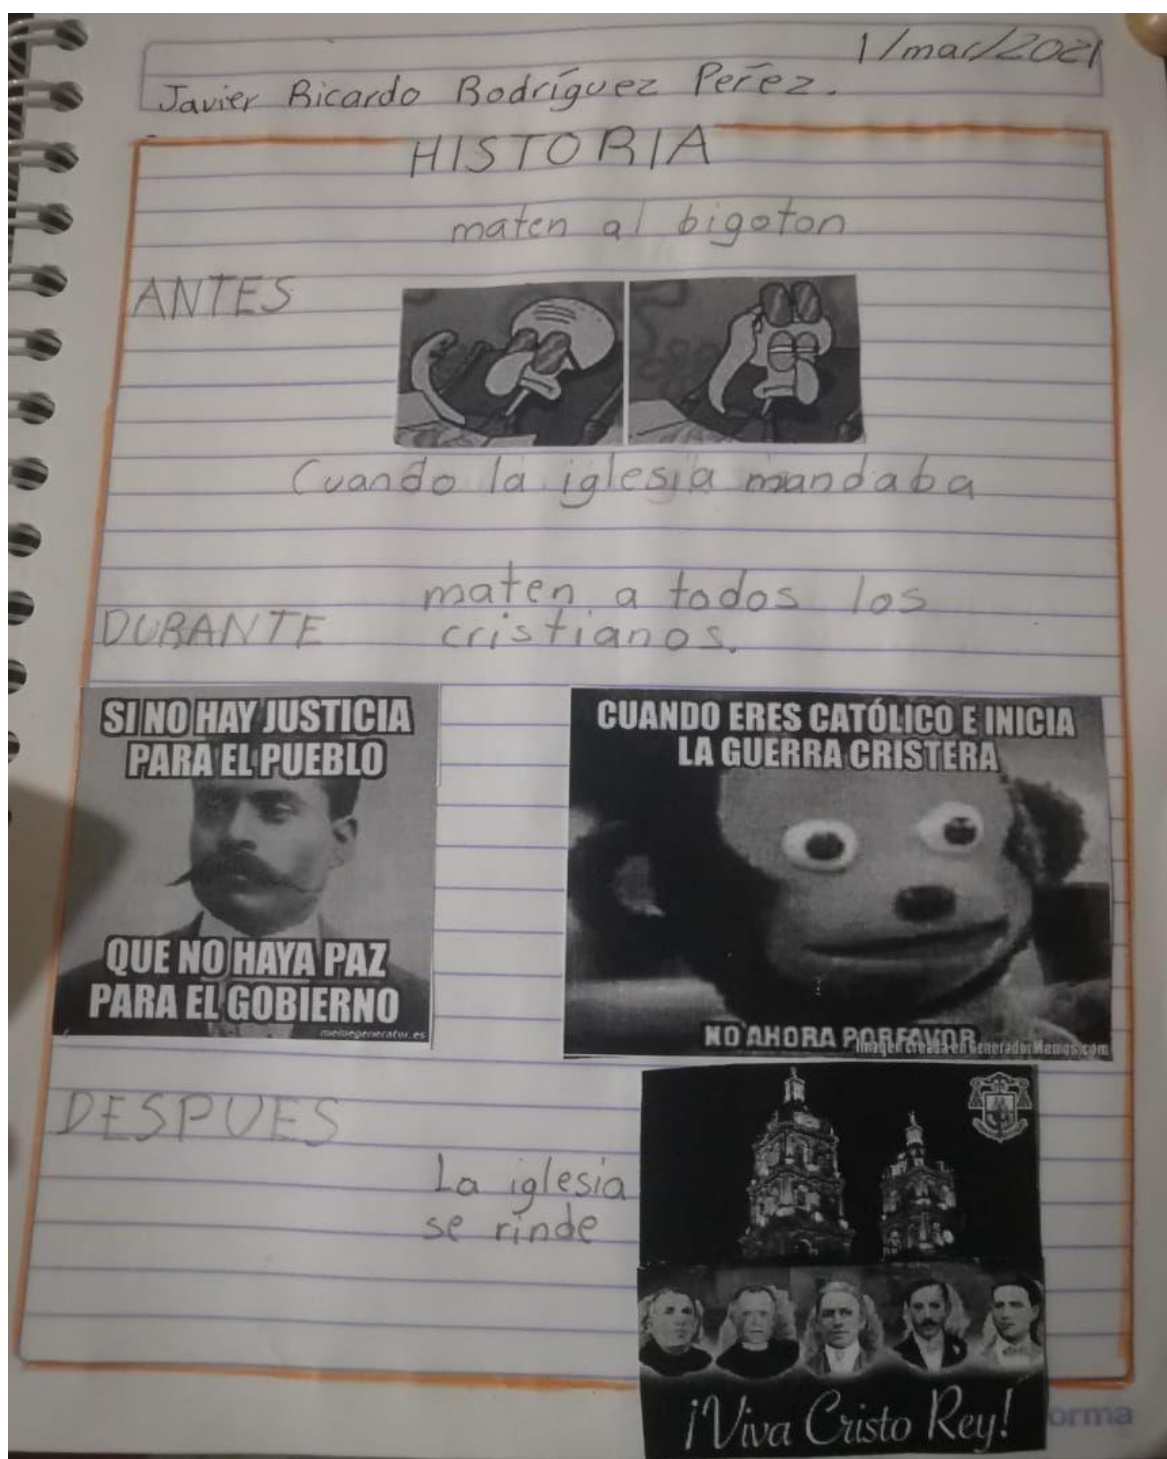 1/mar/2021
Javier Ricardo Rodríguez Peréz.
HISTORIA
maten al bigoton
ANTES
Cuando la iglesia mandaba
maten a todos los
DURANTE
cristianos.
SI NO HAY JUSTICIA
PARA EL PUEBLO
QUE NO HAYA PAZ
PARA EL GOBIERNO
memegenerator.es
CUANDO ERES CATÓLICO E INICIA
LA GUERRA CRISTERA
NO AHORA PORFAVOR
Imagen creada en GeneradorMemes.com
DESPUES
La iglesia
se rinde
¡Viva Cristo Rey!
orma